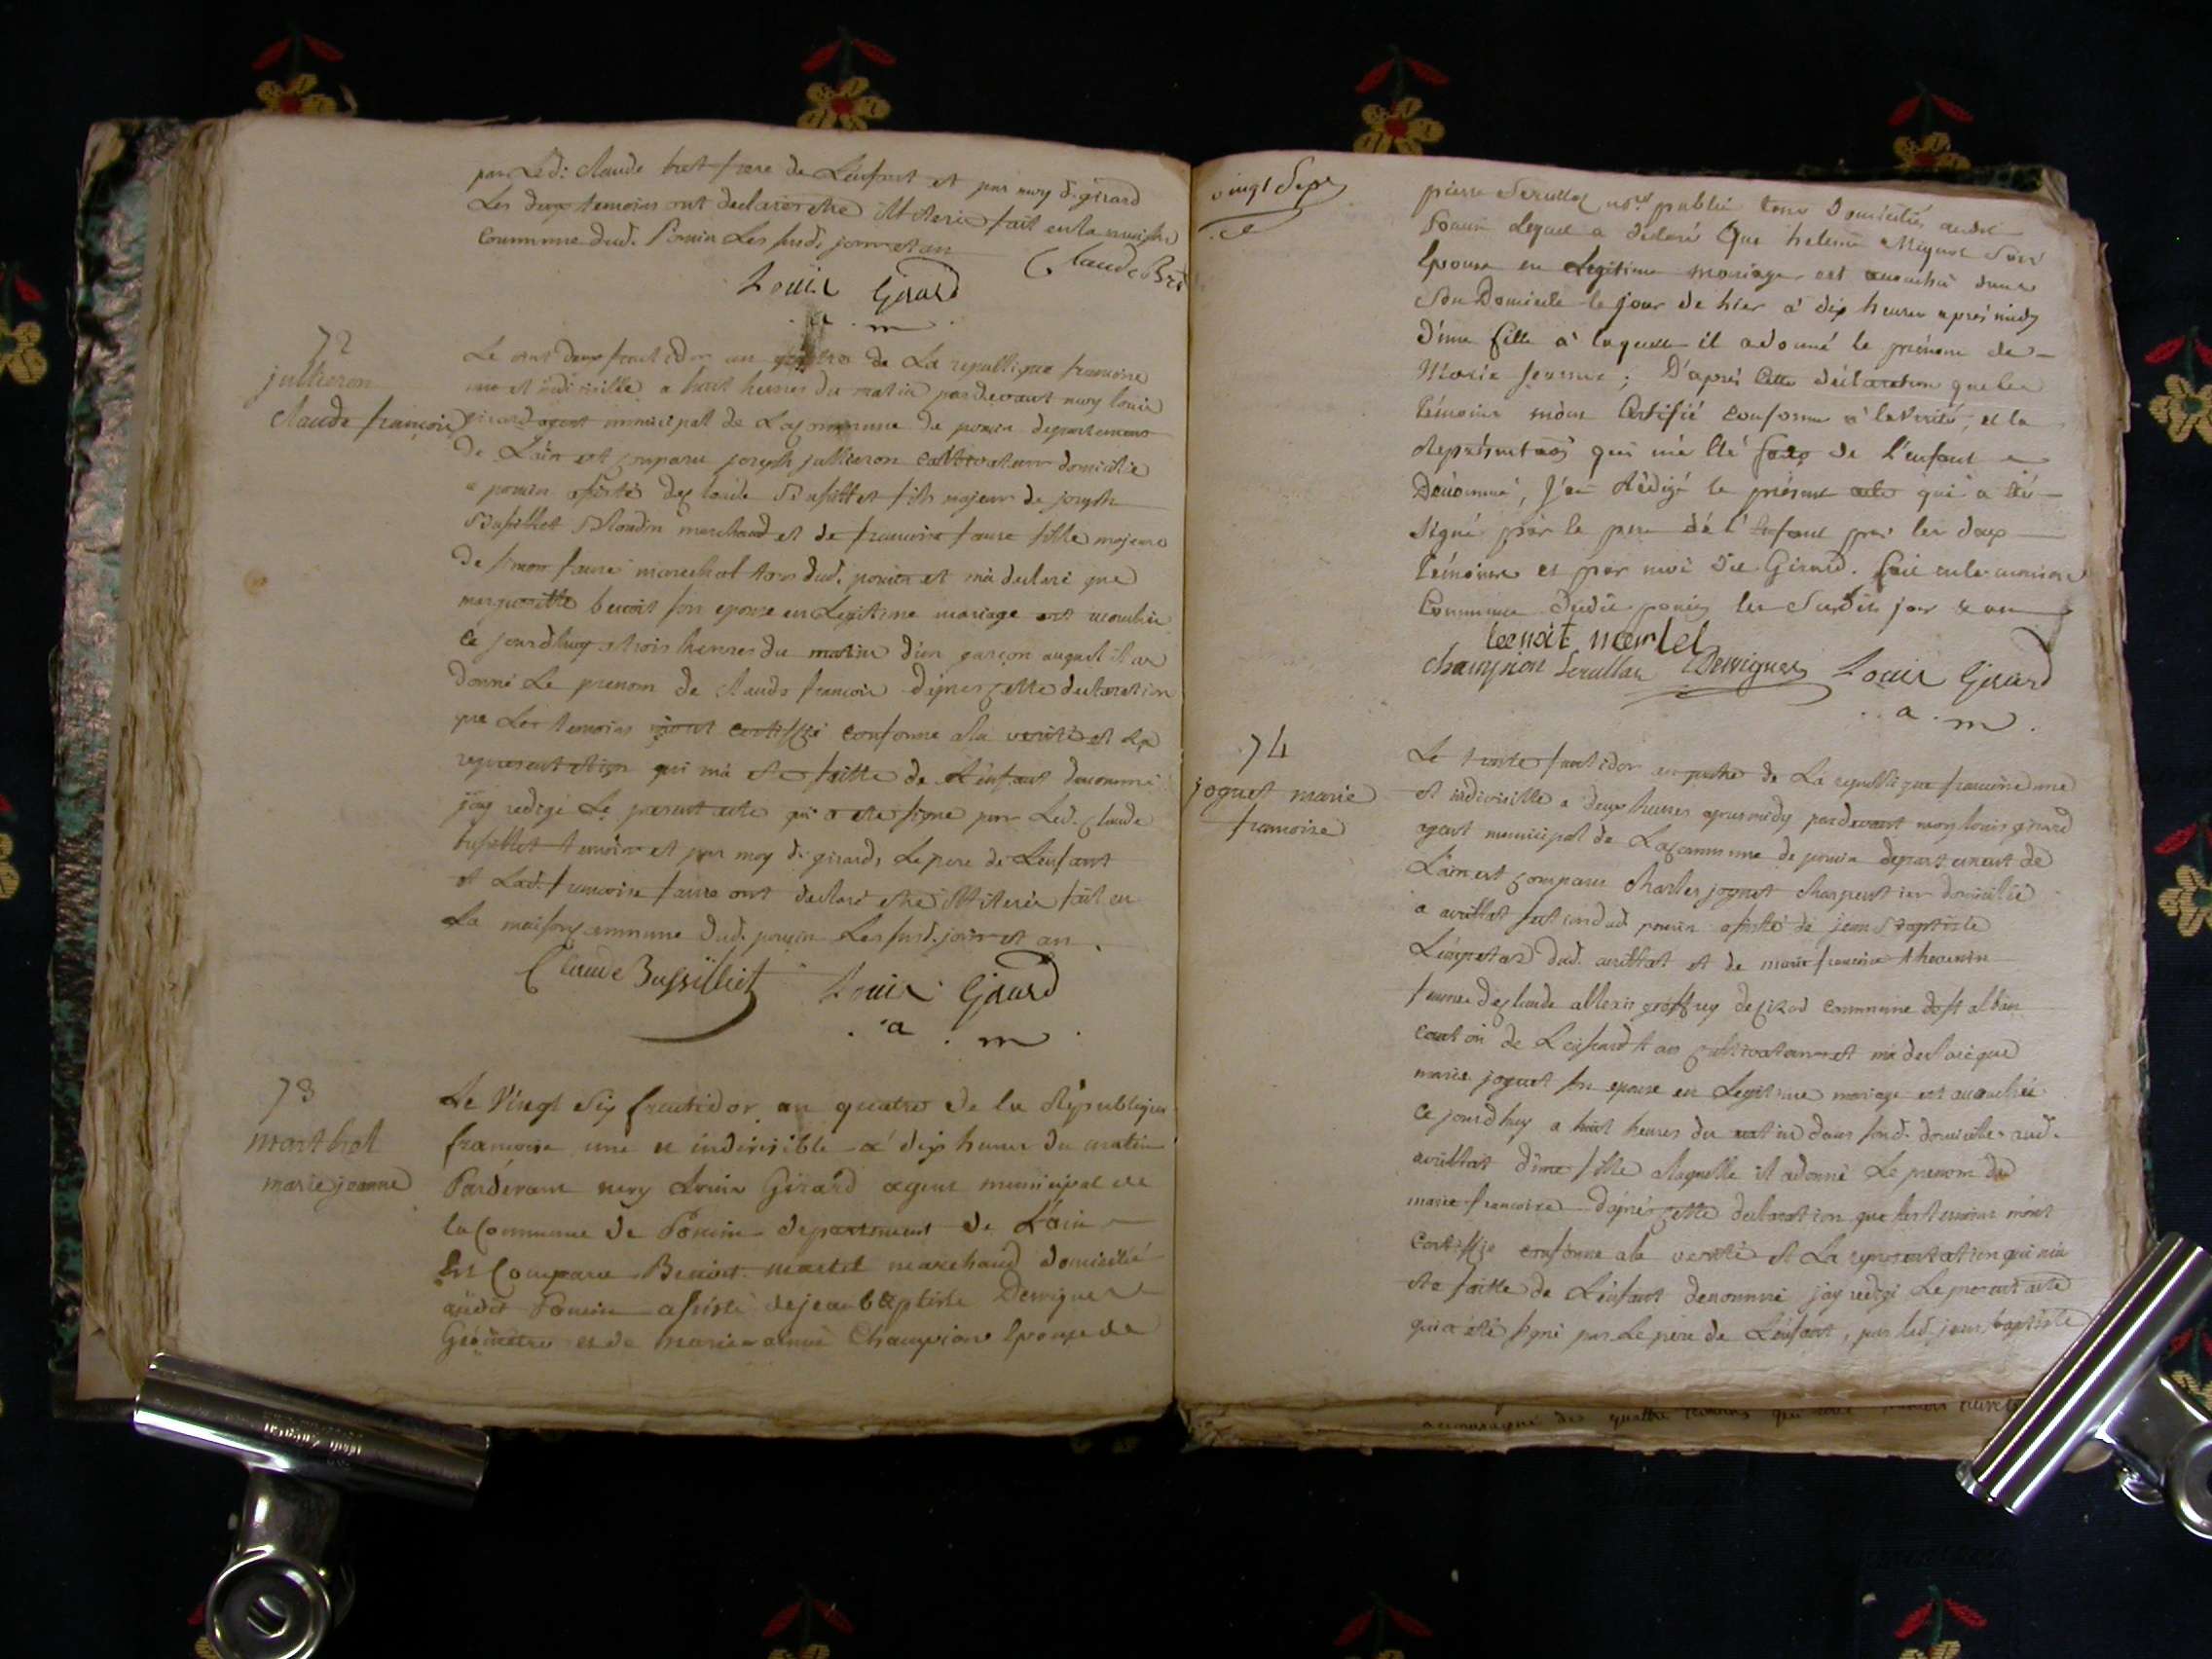 par Led: Claude bret frere de Lenfant et par moy d. girard
Les deux temoins ont declarer etre illiteré fait en la maison
Commune dud. Poncin Les susd. jour et an
Claude Bret
Louis Girard
a . m
72
jullieron
Claude françois
Le vint deux fructidor an quatre de La republique francoise
une et indivisille a huit heures du matin pardevant moy louis
girard agent municipal de La commune de poncin departement
de L'ain est comparu joseph jullieron cultivateur domicilie
a poncin assisté de claude Bussilliet fils majeur de joseph
Bussilliet Blondin marchand et de francoise faure fille majeure
de simon faure marechal tous dud. poncin et m'a declaré que
margueritte benoit son epouse en Legitime mariage est acouchée
ce jourdhuy a trois heures du matin d'un garçon auquel il a
donné Le prenom de claude francois d'apres cette declaration
que Les temoins m'ont certiffié conforme a la verité et La
representation qui m'a ete faitte de L'enfant denommé
j'ay redigé Le present acte qui a ete signe par Led. claude
bussilliet temoin et par moy d. girard, Le pere de L'enfant
et Lad. francoise faure ont declaré etre illiterée fait en
La maison commune dud. poncin Les susd. jour et an .
Claude Bussilliet Louis Girard
. a . m .
73
marthel
marie jeanne
Le Vingt Six fructidor an quatre de la République
francoise une et indivisible a dix heures du matin
Pardevant moy Louis Girard agent municipal de
la Commune de Poncin departement de L'ain
Est Comparu Benoit martel marchand domicilié
audit Poncin assisté de jean baptiste Derrigues
Géometre et de marie aimé Champion Epouse de
vingt Sept
pierre Serullaz no.re public tous Domiciliés audit
Poncin Lequel a déclaré Que helene Miguet Son
Epouse en Legitime mariage est accouchée dans
Son Domicile le jour de hier à dix heures après midy
D'une fille à laquelle il a donné le prénom de
Marie Jeanne ; D'après Cette déclaration que les
témoins m'ont Certifié conforme à la Vérité, et la
Représentation qui m'a été faite de l'enfant
Dénommé, J'ai Rédigé le présent acte qui a été
Signé par le pere de l'Enfant par les deux
témoins et par moi dit Girard. fait en la maison
Commune dudit poncin les Susdits jour et an
benoit martel
champion Serullaz Derrigues Louis Girard
. a . m .
74
joguet marie
francoise
Le trente fructidor an quatre de La republique francoise une
et indivisille a deux heures apres midy pardevant moy louis girard
agent municipal de La commune de poncin departement de
L'ain est comparu charles joguet charpentier domicilié
a avrillat section dud. poncin assisté de jean Baptiste
dud. avrillat et de marie francoise thevenin
femme de claude allexis groffrey de cizod commune de st alban
canton de cultivateur et m'a declaré que
marie joguet son epouse en Legitime mariage est acouchée
ce jourdhuy a huit heures du matin dans sond. domicille aud.
avrillat d'une fille a laquelle il a donné Le prenom de
marie francoise d'apres cette declaration que les temoins m'ont
certiffié conforme a la verité et La representation qui m'a
ete faitte de L'enfant denommé j'ay redigé Le present acte
qui a été signé par Le pere de L'enfant, par led. jean baptiste
accompagné des quattre temoins qui